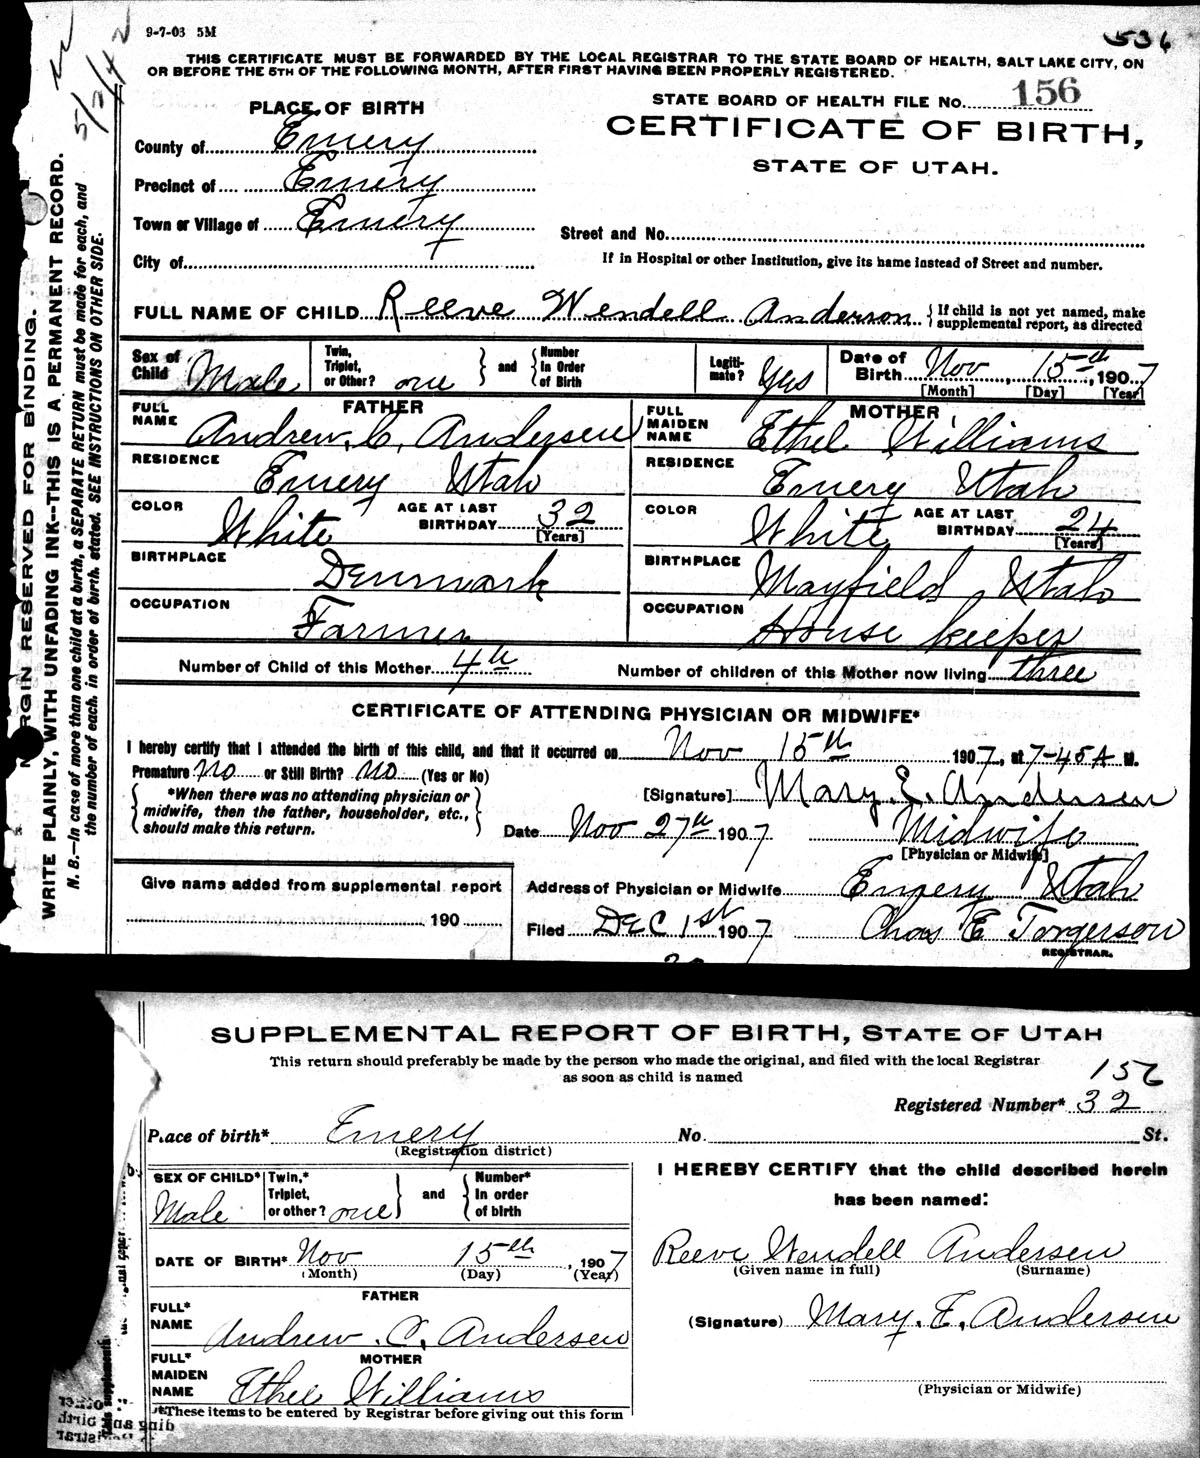 9-7-03 5M
536
5/2/42
THIS CERTIFICATE MUST BE FORWARDED BY THE LOCAL REGISTRAR TO THE STATE BOARD OF HEALTH, SALT LAKE CITY, ON
OR BEFORE THE 5TH OF THE FOLLOWING MONTH, AFTER FIRST HAVING BEEN PROPERLY REGISTERED.
STATE BOARD OF HEALTH FILE No. 156
CERTIFICATE OF BIRTH,
STATE OF UTAH.
PLACE OF BIRTH
County of Emery
Precinct of Emery
Town or Village of Emery
City of
Street and No.
If in Hospital or other Institution, give its name instead of Street and number.
FULL NAME OF CHILD Reeve Wendell Anderson { If child is not yet named, make
supplemental report, as directed
Sex of Child Male
Twin, Triplet, or Other? one } and { Number In Order of Birth
Legiti- mate? Yes
Date of Birth Nov 15th, 1907
[Month] [Day] [Year]
FATHER
FULL NAME Andrew. C. Andersen
RESIDENCE
Emery Utah
COLOR White AGE AT LAST BIRTHDAY 32
[Years]
BIRTHPLACE
Denmark
OCCUPATION
Farmer
MOTHER
FULL MAIDEN NAME Ethel Williams
RESIDENCE
Emery Utah
COLOR White AGE AT LAST BIRTHDAY 24
[Years]
BIRTHPLACE Mayfield Utah
OCCUPATION
House keeper
Number of Child of this Mother 4th Number of children of this Mother now living three
CERTIFICATE OF ATTENDING PHYSICIAN OR MIDWIFE*
I hereby certify that I attended the birth of this child, and that it occurred on Nov 15th 1907, at 7-45 A M.
Premature No or Still Birth? No (Yes or No)
{ *When there was no attending physician or
midwife, then the father, householder, etc.,
should make this return. }
[Signature] Mary. E. Andersen
Date Nov 27th 1907 Midwife
[Physician or Midwife]
Address of Physician or Midwife Emery Utah
Filed DEC 1st 1907 Chas E Torgerson
REGISTRAR.
Give name added from supplemental report
190
MARGIN RESERVED FOR BINDING.
WRITE PLAINLY, WITH UNFADING INK--THIS IS A PERMANENT RECORD.
N. B.—In case of more than one child at a birth, a SEPARATE RETURN must be made for each, and
the number of each, in order of birth, stated. SEE INSTRUCTIONS ON OTHER SIDE.
SUPPLEMENTAL REPORT OF BIRTH, STATE OF UTAH
This return should preferably be made by the person who made the original, and filed with the local Registrar
as soon as child is named
156
Registered Number* 32
Place of birth* Emery No. St.
(Registration district)
SEX OF CHILD* Male
Twin,* Triplet, or other? one } and { Number* In order of birth
DATE OF BIRTH* Nov 15th, 1907
(Month) (Day) (Year)
FATHER
FULL* NAME Andrew. C. Andersen
MOTHER
FULL* MAIDEN NAME Ethel Williams
*These items to be entered by Registrar before giving out this form
I HEREBY CERTIFY that the child described herein
has been named:
Reeve Wendell Andersen
(Given name in full) (Surname)
(Signature) Mary. E. Andersen
(Physician or Midwife)